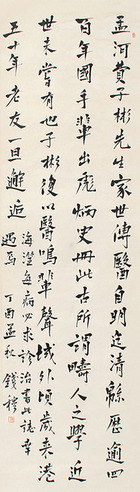 孟河費子彬先生家世傳醫自明迄清緜歷逾四
百年國手輩出彪炳史冊此古所謂疇人之學近
世未嘗有也子彬復以醫鳴輩聲域外頃歲來港
五十年老友一旦邂逅
海澨每病必求診治書此誌幸
遇焉 丁酉孟秋 錢穆